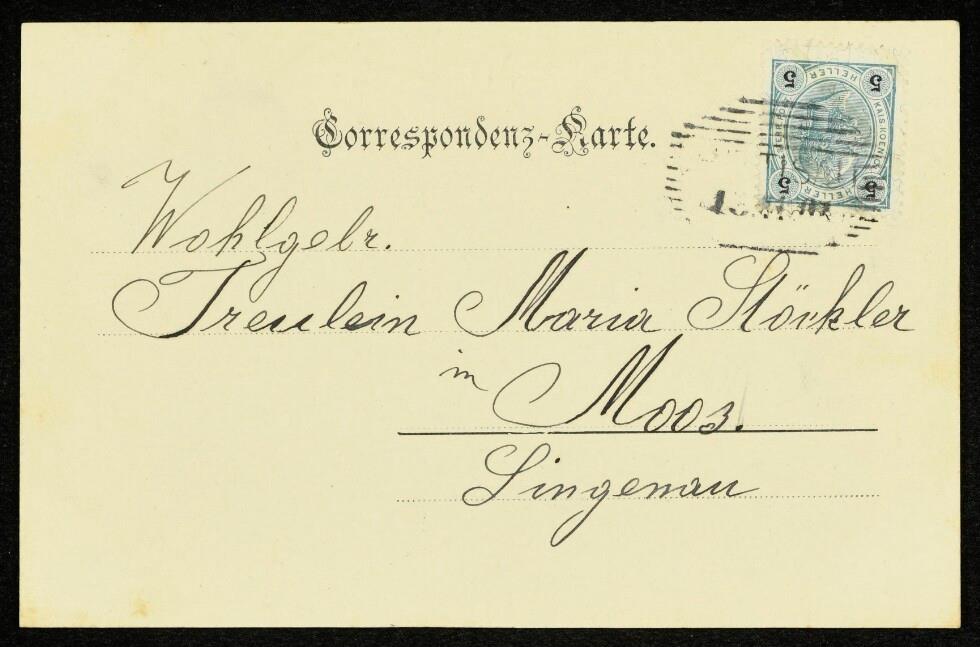 Correspondenz-Karte.
5 HELLER 5
KAIS. KOENIGL.
5 HELLER 5
Wohlgebr.
Freulein Maria Stöckler
in
Mooz.
Lingenau